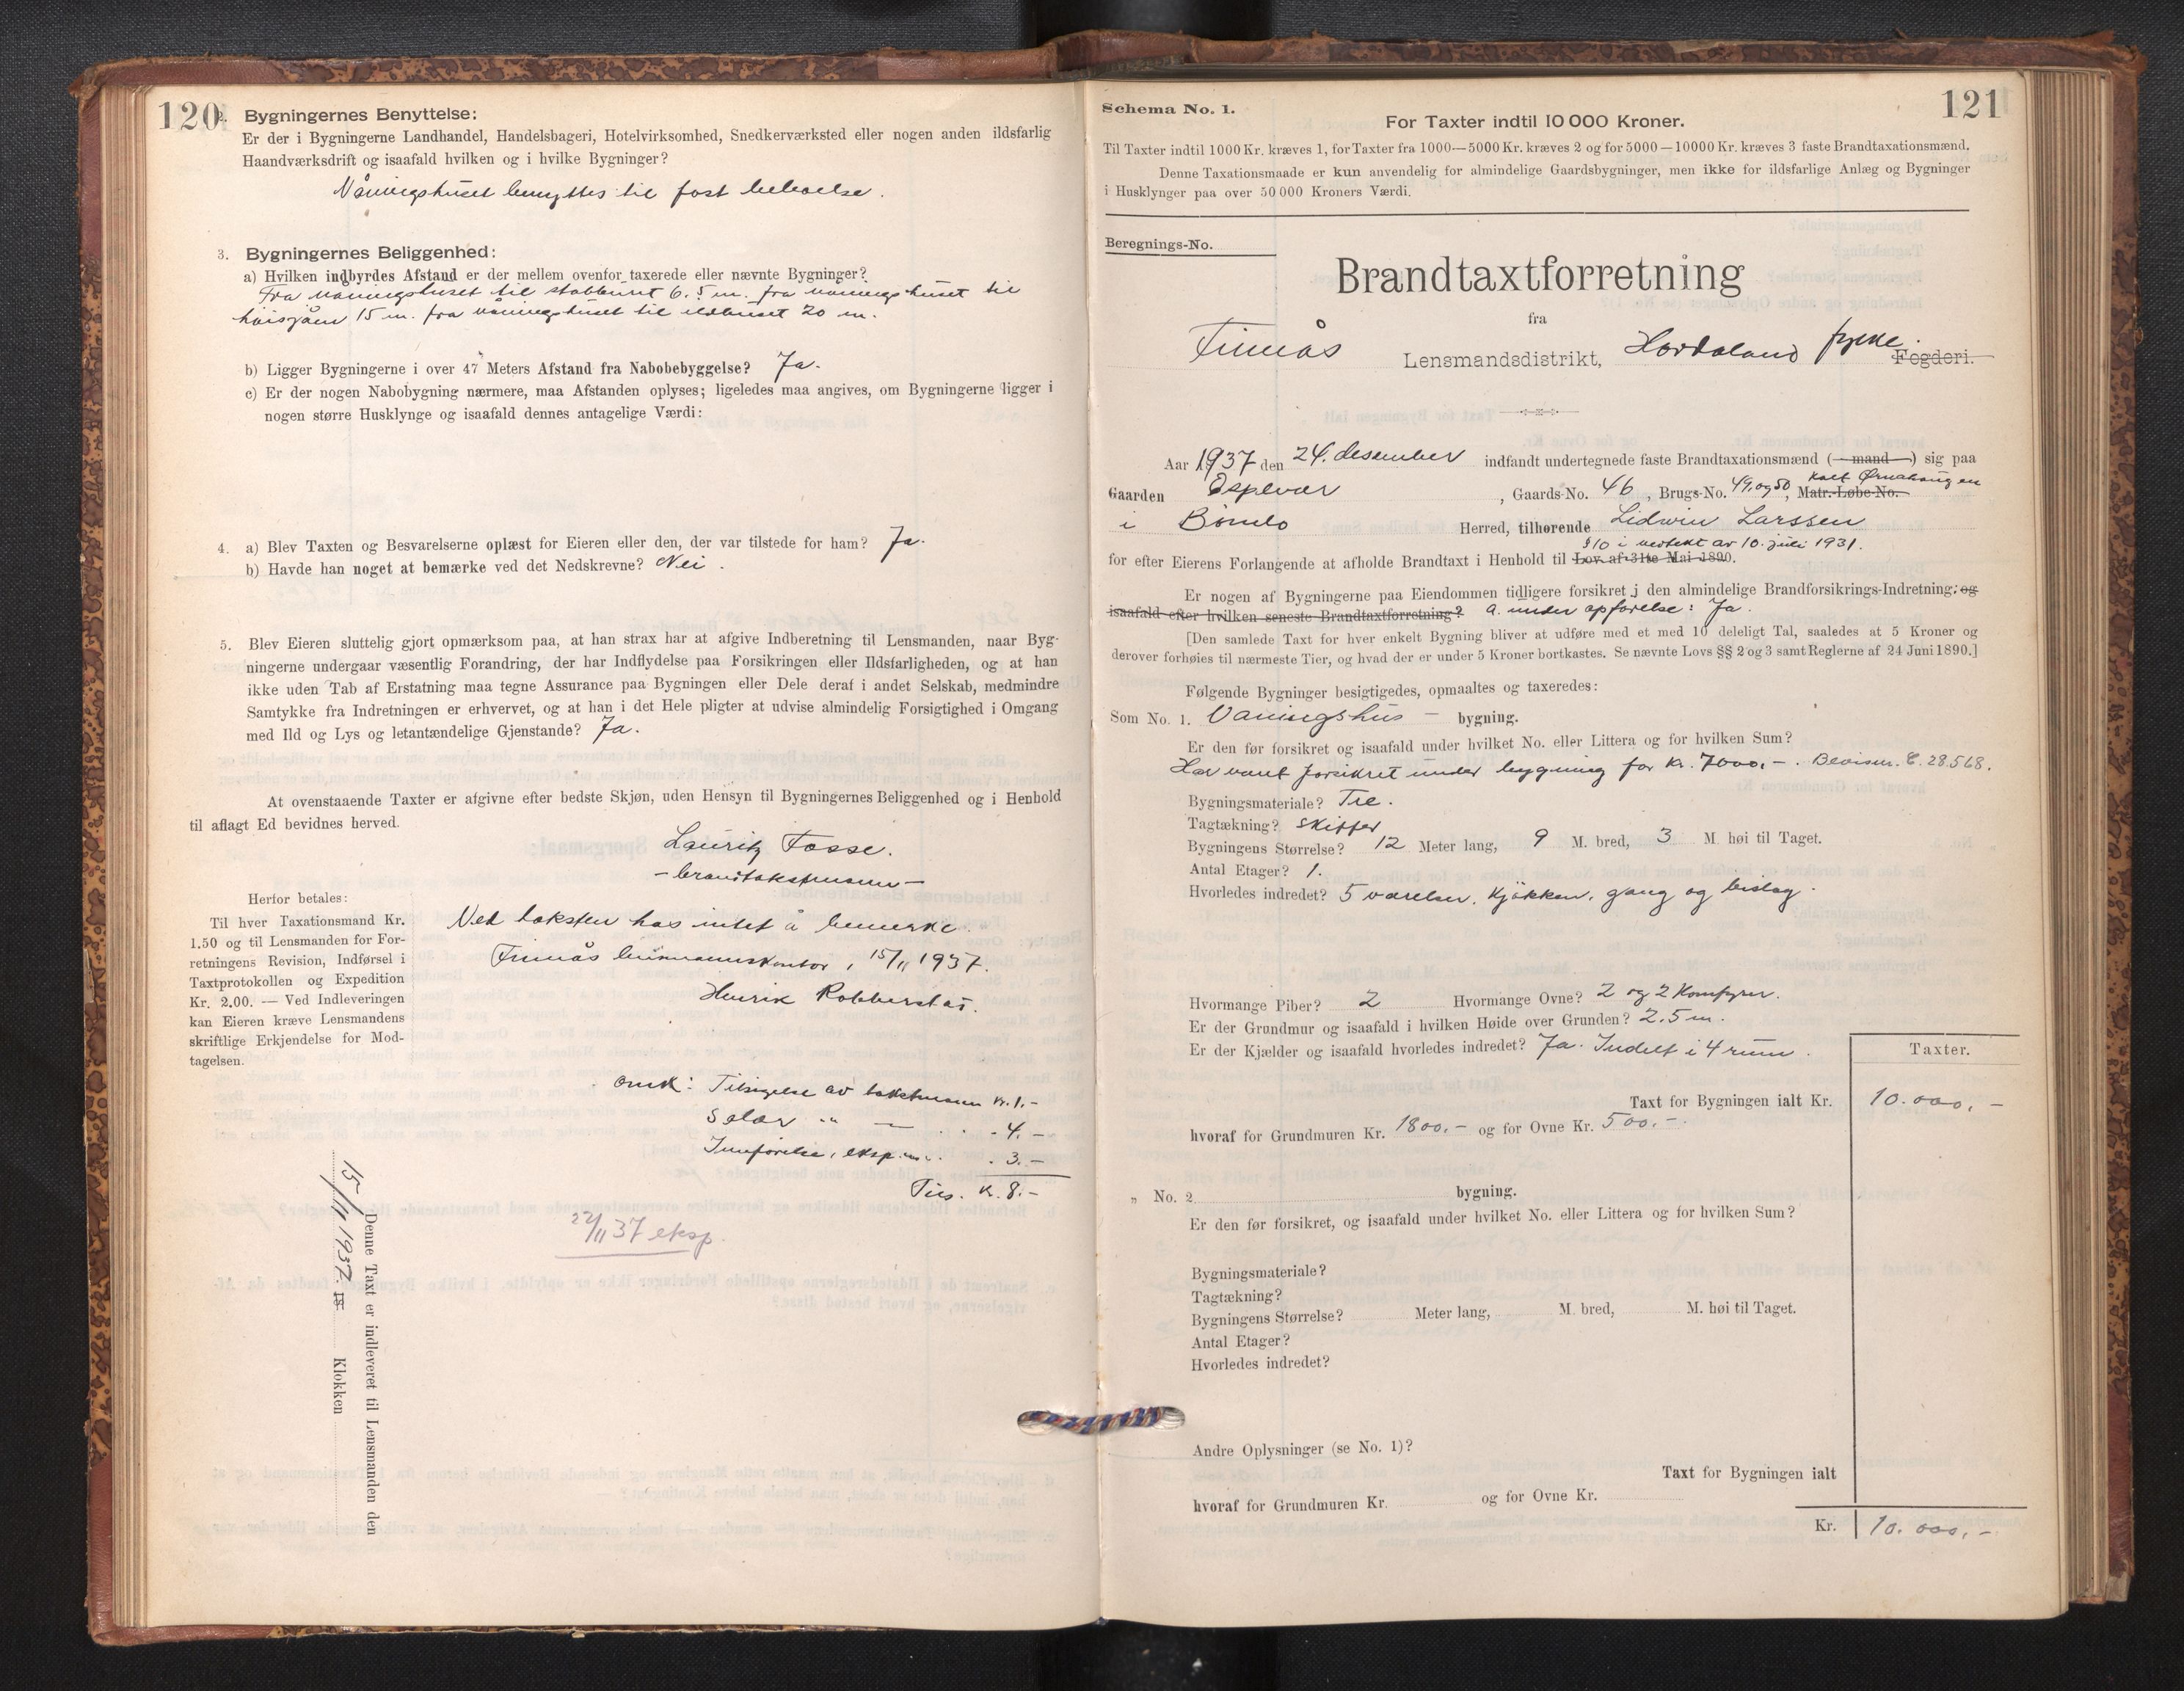 120
2. Bygningernes Benyttelse:
Er der i Bygningerne Landhandel, Handelsbageri, Hotelvirksomhed, Snedkerværksted eller nogen anden ildsfarlig
Haandværksdrift og isaafald hvilken og i hvilke Bygninger?
Våningshuset benyttes til fast beboelse.
3. Bygningernes Beliggenhed:
a) Hvilken indbyrdes Afstand er der mellem ovenfor taxerede eller nævnte Bygninger?
Fra våningshuset til stabburet 6,5 m. fra våningshuset til
15 m. fra våningshuset til ildhuset 20 m.
b) Ligger Bygningerne i over 47 Meters Afstand fra Nabobebyggelse? Ja.
c) Er der nogen Nabobygning nærmere, maa Afstanden oplyses; ligeledes maa angives, om Bygningerne ligger i
nogen større Husklynge og isaafald dennes antagelige Værdi:
4. a) Blev Taxten og Besvarelserne oplæst for Eieren eller den, der var tilstede for ham? Ja.
b) Havde han noget at bemærke ved det Nedskrevne? Nei.
5. Blev Eieren sluttelig gjort opmærksom paa, at han strax har at afgive Indberetning til Lensmanden, naar Byg-
ningerne undergaar væsentlig Forandring, der har Indflydelse paa Forsikringen eller Ildsfarligheden, og at han
ikke uden Tab af Erstatning maa tegne Assurance paa Bygningen eller Dele deraf i andet Selskab, medmindre
Samtykke fra Indretningen er erhvervet, og at han i det Hele pligter at udvise almindelig Forsigtighed i Omgang
med Ild og Lys og letantændelige Gjenstande? Ja.
At ovenstaaende Taxter er afgivne efter bedste Skjøn, uden Hensyn til Bygningernes Beliggenhed og i Henhold
til aflagt Ed bevidnes herved.
Lauritz Fosse.
- branntakstmann -
Herfor betales:
Til hver Taxationsmand Kr.
1.50 og til Lensmanden for For-
retningens Revision, Indførsel i
Taxtprotokollen og Expedition
Kr. 2.00. — Ved Indleveringen
kan Eieren kræve Lensmandens
skriftlige Erkjendelse for Mod-
tagelsen.
Ved taksten has intet å bemerke.
Finnås lensmannskontor, 15/11 1937.
Henrik Robberstad.
Omk: Tilsigelse av takstmann kr. 1.-
Salær " — . . - 4.-
Innførelse, eksp. m.v. . 3.-
Tils. kr. 8.-
22/11 37 eksp.
Denne Taxt er indleveret til Lensmanden den
15/11 1937. 18 Klokken
121
Schema No. 1.
For Taxter indtil 10 000 Kroner.
Til Taxter indtil 1000 Kr. kræves 1, for Taxter fra 1000—5000 Kr. kræves 2 og for 5000—10000 Kr. kræves 3 faste Brandtaxationsmænd.
Denne Taxationsmaade er kun anvendelig for almindelige Gaardsbygninger, men ikke for ildsfarlige Anlæg og Bygninger
i Husklynger paa over 50 000 Kroners Værdi.
Beregnings-No.
Brandtaxtforretning
fra
Finnås Lensmandsdistrikt, Hordaland fylke. Fogderi.
Aar 1937 den 24. desember indfandt undertegnede faste Brandtaxationsmænd (mand) sig paa
Gaarden Espevær, Gaards-No. 46, Brugs-No. 49 og 50, Matr.-Løbe-No. kalt Ørnahaugen
i Bømlo Herred, tilhørende Lidwin Larssen
§10 i vedtekt av 10. juli 1931.
for efter Eierens Forlangende at afholde Brandtaxt i Henhold til Lov af 31te Mai 1890.
Er nogen af Bygningerne paa Eiendommen tidligere forsikret j den almindelige Brandforsikrings-Indretning: og
isaafald efter hvilken seneste Brandtaxtforretning? a. under opførelse: Ja.
[Den samlede Taxt for hver enkelt Bygning bliver at udføre med et med 10 deleligt Tal, saaledes at 5 Kroner og
derover forhøies til nærmeste Tier, og hvad der er under 5 Kroner bortkastes. Se nævnte Lovs §§ 2 og 3 samt Reglerne af 24 Juni 1890.]
Følgende Bygninger besigtigedes, opmaaltes og taxeredes:
Som No. 1. Vaningshus - bygning.
Er den før forsikret og isaafald under hvilket No. eller Littera og for hvilken Sum?
Har vært forsikret under bygning for kr. 7000,-. Bevisnr. C. 28.568.
Bygningsmateriale? Tre.
Tagtækning? skiffer
Bygningens Størrelse? 12 Meter lang, 9 M. bred, 3 M. høi til Taget.
Antal Etager? 1.
Hvorledes indredet? 5 værelser, kjøkken, gang og bislag.
Hvormange Piber? 2 Hvormange Ovne? 2 og 2 Komfyrer.
Er der Grundmur og isaafald i hvilken Høide over Grunden? 2,5 m.
Er der Kjælder og isaafald hvorledes indredet? Ja. Indelt i 4 rum.
Taxter.
Taxt for Bygningen ialt Kr. 10.000,-
hvoraf for Grundmuren Kr. 1800,- og for Ovne Kr. 500,-.
" No. 2 bygning.
Er den før forsikret, og isaafald under hvilket No. eller Littera og for hvilken Sum?
Bygningsmateriale?
Tagtækning?
Bygningens Størrelse? Meter lang, M. bred, M. høi til Taget.
Antal Etager?
Hvorledes indredet?
Andre Oplysninger (se No. 1)?
Taxt for Bygningen ialt
hvoraf for Grundmuren Kr. og for Ovne Kr.
Kr. 10.000,-